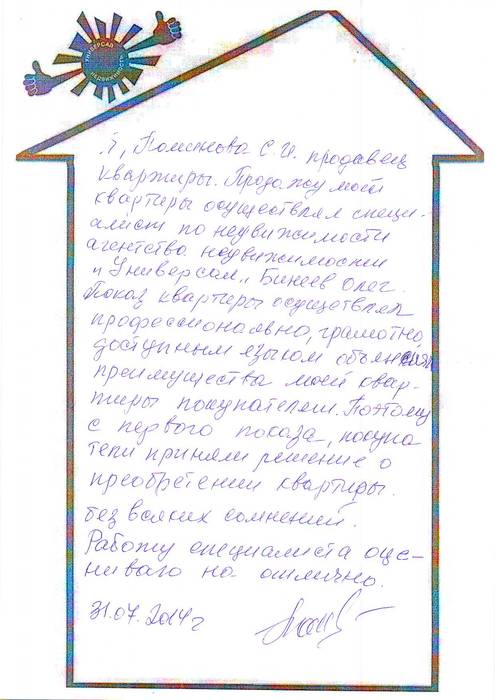 УНИВЕРСАЛ
НЕДВИЖИМОСТЬ
Я, Поминова С.И. продавец
квартиры. Продажу моей
квартиры осуществлял специ-
алист по недвижимости
агентства недвижимости
"Универсал" Бинеев Олег.
Показ квартиры осуществлял
профессионально, грамотно,
доступным языком объяснял
преимущества моей квар-
тиры покупателям. Поэтому
с первого показа, покупа
тели приняли решение о
преобретении квартиры.
без всяких сомнений.
Работу специалиста оце-
ниваю на отлично.
31.07.2014г